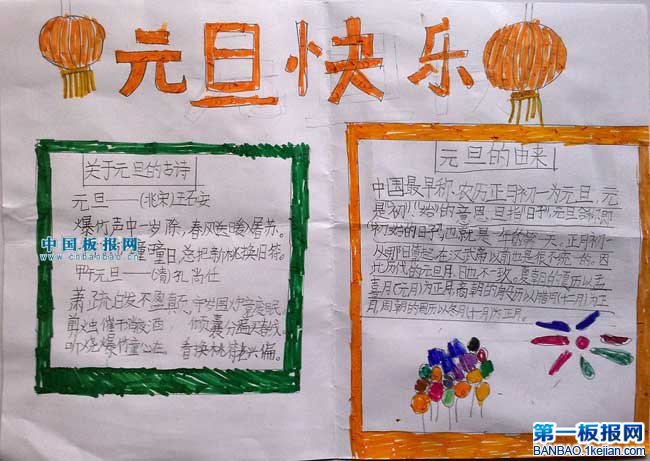 元旦快乐
关于元旦的古诗
元旦——(北宋)王石安
爆竹声中一岁除,春风送暖入屠苏。
瞳瞳日,总把新桃换旧符。
甲午元旦——(清)孔尚任
萧疏白发不盈颠,守岁围炉竟废眠。
剪烛催干消夜酒,倾囊分遍买春钱。
听烧爆竹童心在,看换桃符老兴偏。
元旦的由来
中国最早称农历正月初一为元旦,元
是"初""始"的意思,旦指日子,元旦合称即
"初始的日子",也就是一年的第一天。正月初一
从哪日算起在汉武帝以前也是很不统一的。因
此历代的元旦月、日也不一致。夏朝的夏历以孟
喜月(元月)为正月,商朝的殷历以腊月(十二月)为正
月,周朝的周历以冬月(十一月)为正月。
中国板报网
www.banbao.com.cn
第一板报网
BANBAO.1kejian.com